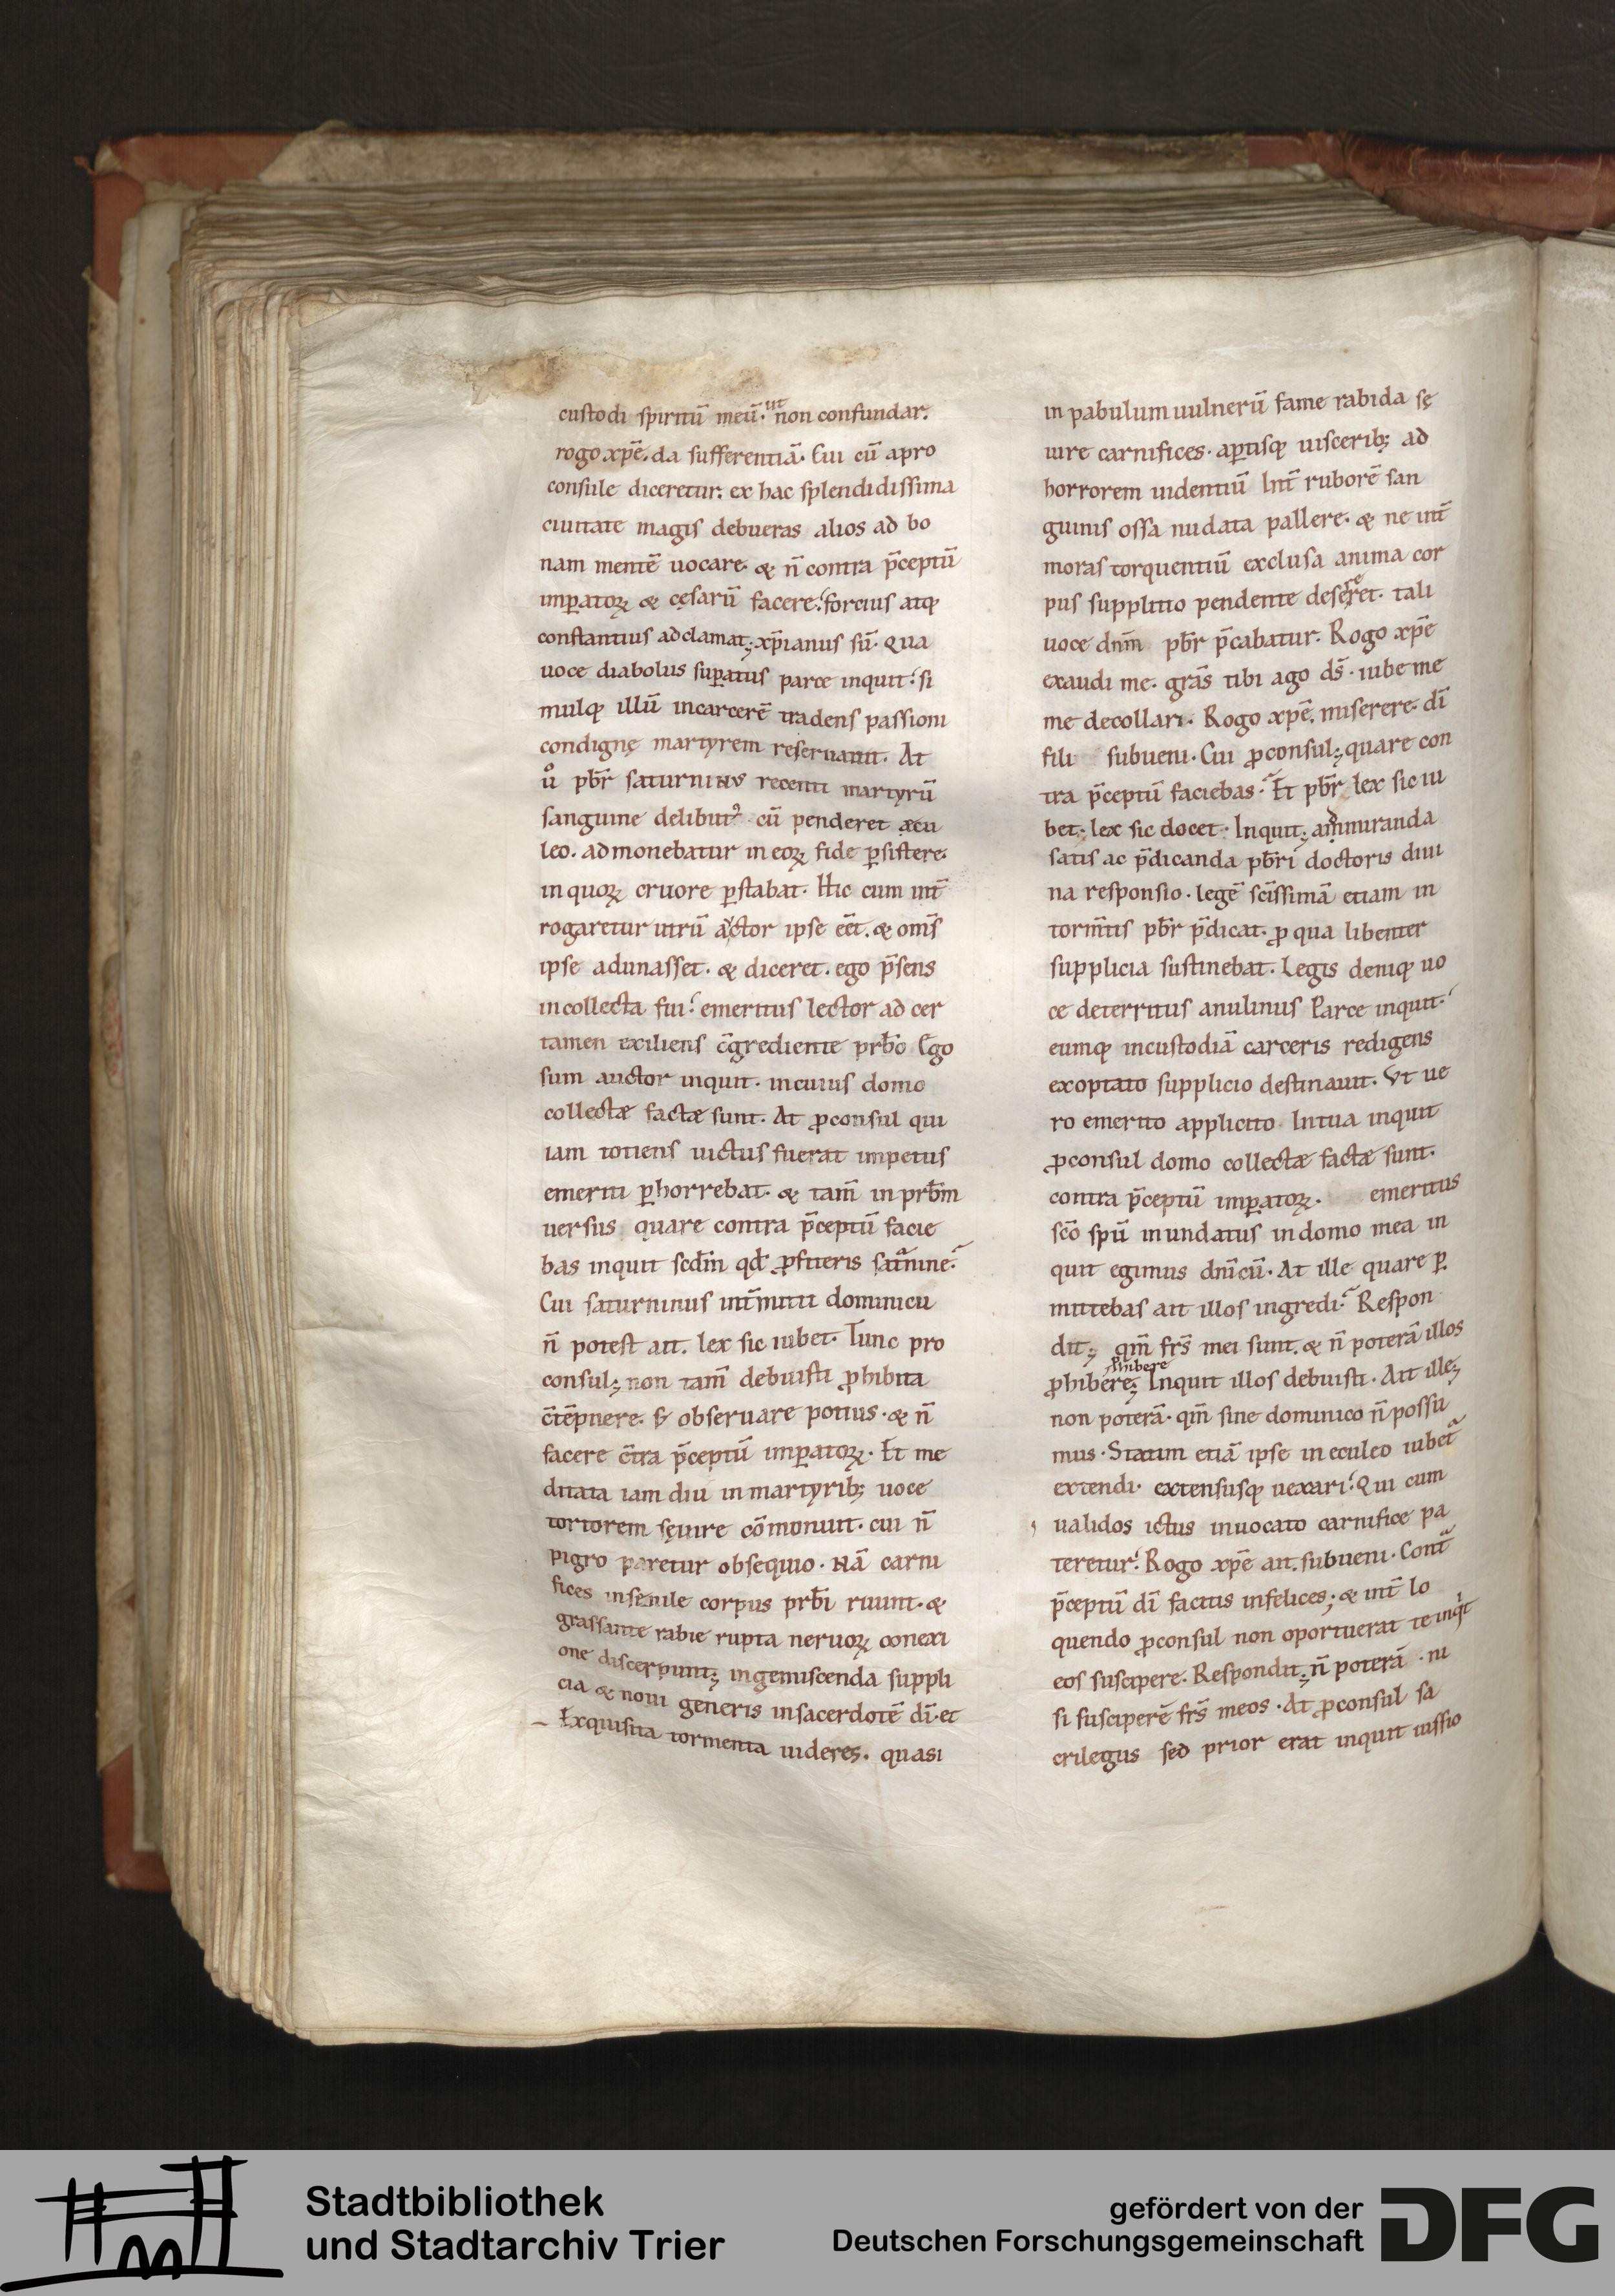 custodi spiritū meū. ut non confundar.
rogo xpē. da sufferentiā. Cui cū apro
consule diceretur. ex hac splendidissima
ciuitate magis debueras alios ad bo
nam mentē uocare. & n̄ contra p̄ceptū
imꝑatoꝝ & cęsarū facere. forcius atq;
constantius adclamat; xp̄ianus sū. Qua
uoce diabolus suꝑatus parce inquit. si
mulq; illū incarcerē tradens passioni
condignę martyrem reseruauit. At
uͦ pb̄r saturninus recenti martyrū
sanguine delibutꝰ cū penderet æcu
leo. admonebatur in eoꝝ fide ꝑsistere.
in quoꝝ cruore ꝑstabat. Hic cum int̄
rogaretur utrū auctor ipse eēt. & om̄s
ipse adunasset. & diceret. ego p̄sens
in collecta fui. emeritus lector ad cer
tamen exiliens c̄grediente prb̄o Ego
sum auctor inquit. in cuius domo
collectæ factæ sunt. At ꝓconsul qui
iam totiens uictus fuerat impetus
emeriti ꝑhorrebat. & tam̄ in prb̄m
uersus quare contra p̄ceptū facie
bas inquit sedm̄ qd̄ ꝓfiteris saturnine.
Cui saturninus int̄mitti dominicū
n̄ potest ait. lex sic iubet. Tunc pro
consul; non tam̄ debuisti ꝓhibita
c̄tēpnere. S; obseruare potius. & n̄
facere c̄tra p̄ceptū imꝑatoꝝ. Et me
ditata iam diu in martyrib; uoce
tortorem sęuire cōmonuit. cui n̄
pigro paretur obsequio. Nā carni
fices in senile corpus prb̄i ruunt. &
grassante rabie rupta neruoꝝ conexi
one discerpunt; ingemiscenda suppli
cia & noui generis in sacerdotē dī. et
Exquisita tormenta uideres. quasi
in pabulum uulnerū fame rabida sę
uire carnifices. aꝑtisq; uiscerib; ad
horrorem uidentiū Int̄ ruborē san
guinis ossa nudata pallere. & ne int̄
moras torquentiū exclusa anima cor
pus supplitio pendente desereret. tali
uoce dnm̄ pb̄r p̄cabatur. Rogo xpē
exaudi me. grās tibi ago ds̄. iube me
me decollari. Rogo xpē. miserere. dī
fili subueni. Cui ꝓconsul; quare con
tra p̄ceptū faciebas. Et pb̄r lex sic iu
bet. lex sic docet. Inquit; ammiranda
satis ac p̄dicanda pb̄ri doctoris diui
na responsio. legē scīssimā etiam in
torm̄tis pb̄r p̄dicat. ꝓ qua libenter
supplicia sustinebat. Legis deniq; uo
ce deterritus anulinus Parce inquit.
eumq; incustodiā carceris redigens
exoptato supplicio destinauit. Vt ue
ro emerito applicito. Intua inquit
ꝓconsul domo collectæ factæ sunt.
contra p̄ceptū imꝑatoꝝ. emeritus
scō spū inundatus in domo mea in
quit egimus dnīcū. At ille quare ꝑ
mittebas ait illos ingredi. Respon
dit; qm̄ frs̄ mei sunt. & n̄ poterā illos
ꝓhibere
ꝓhibere; Inquit illos debuisti. Ait ille;
non poterā. qm̄ sine dominico n̄ possu
mus. Statim etiā ipse in eculeo iubet̄
extendi. extensusq; uexari. Qui cum
ualidos ictus inuocato carnifice pa
teretur. Rogo xpē ait. subueni. Cont̄
p̄ceptū dī facitis infelices; & int̄ lo
quendo ꝓconsul non oportuerat te inqt
eos suscipere. Respondit; n̄ poterā. ni
si susciperē frs̄ meos. At ꝓconsul sa
crilegus sed prior erat inquit iussio
Stadtbibliothek
und Stadtarchiv Trier
gefördert von der
Deutschen Forschungsgemeinschaft
DFG